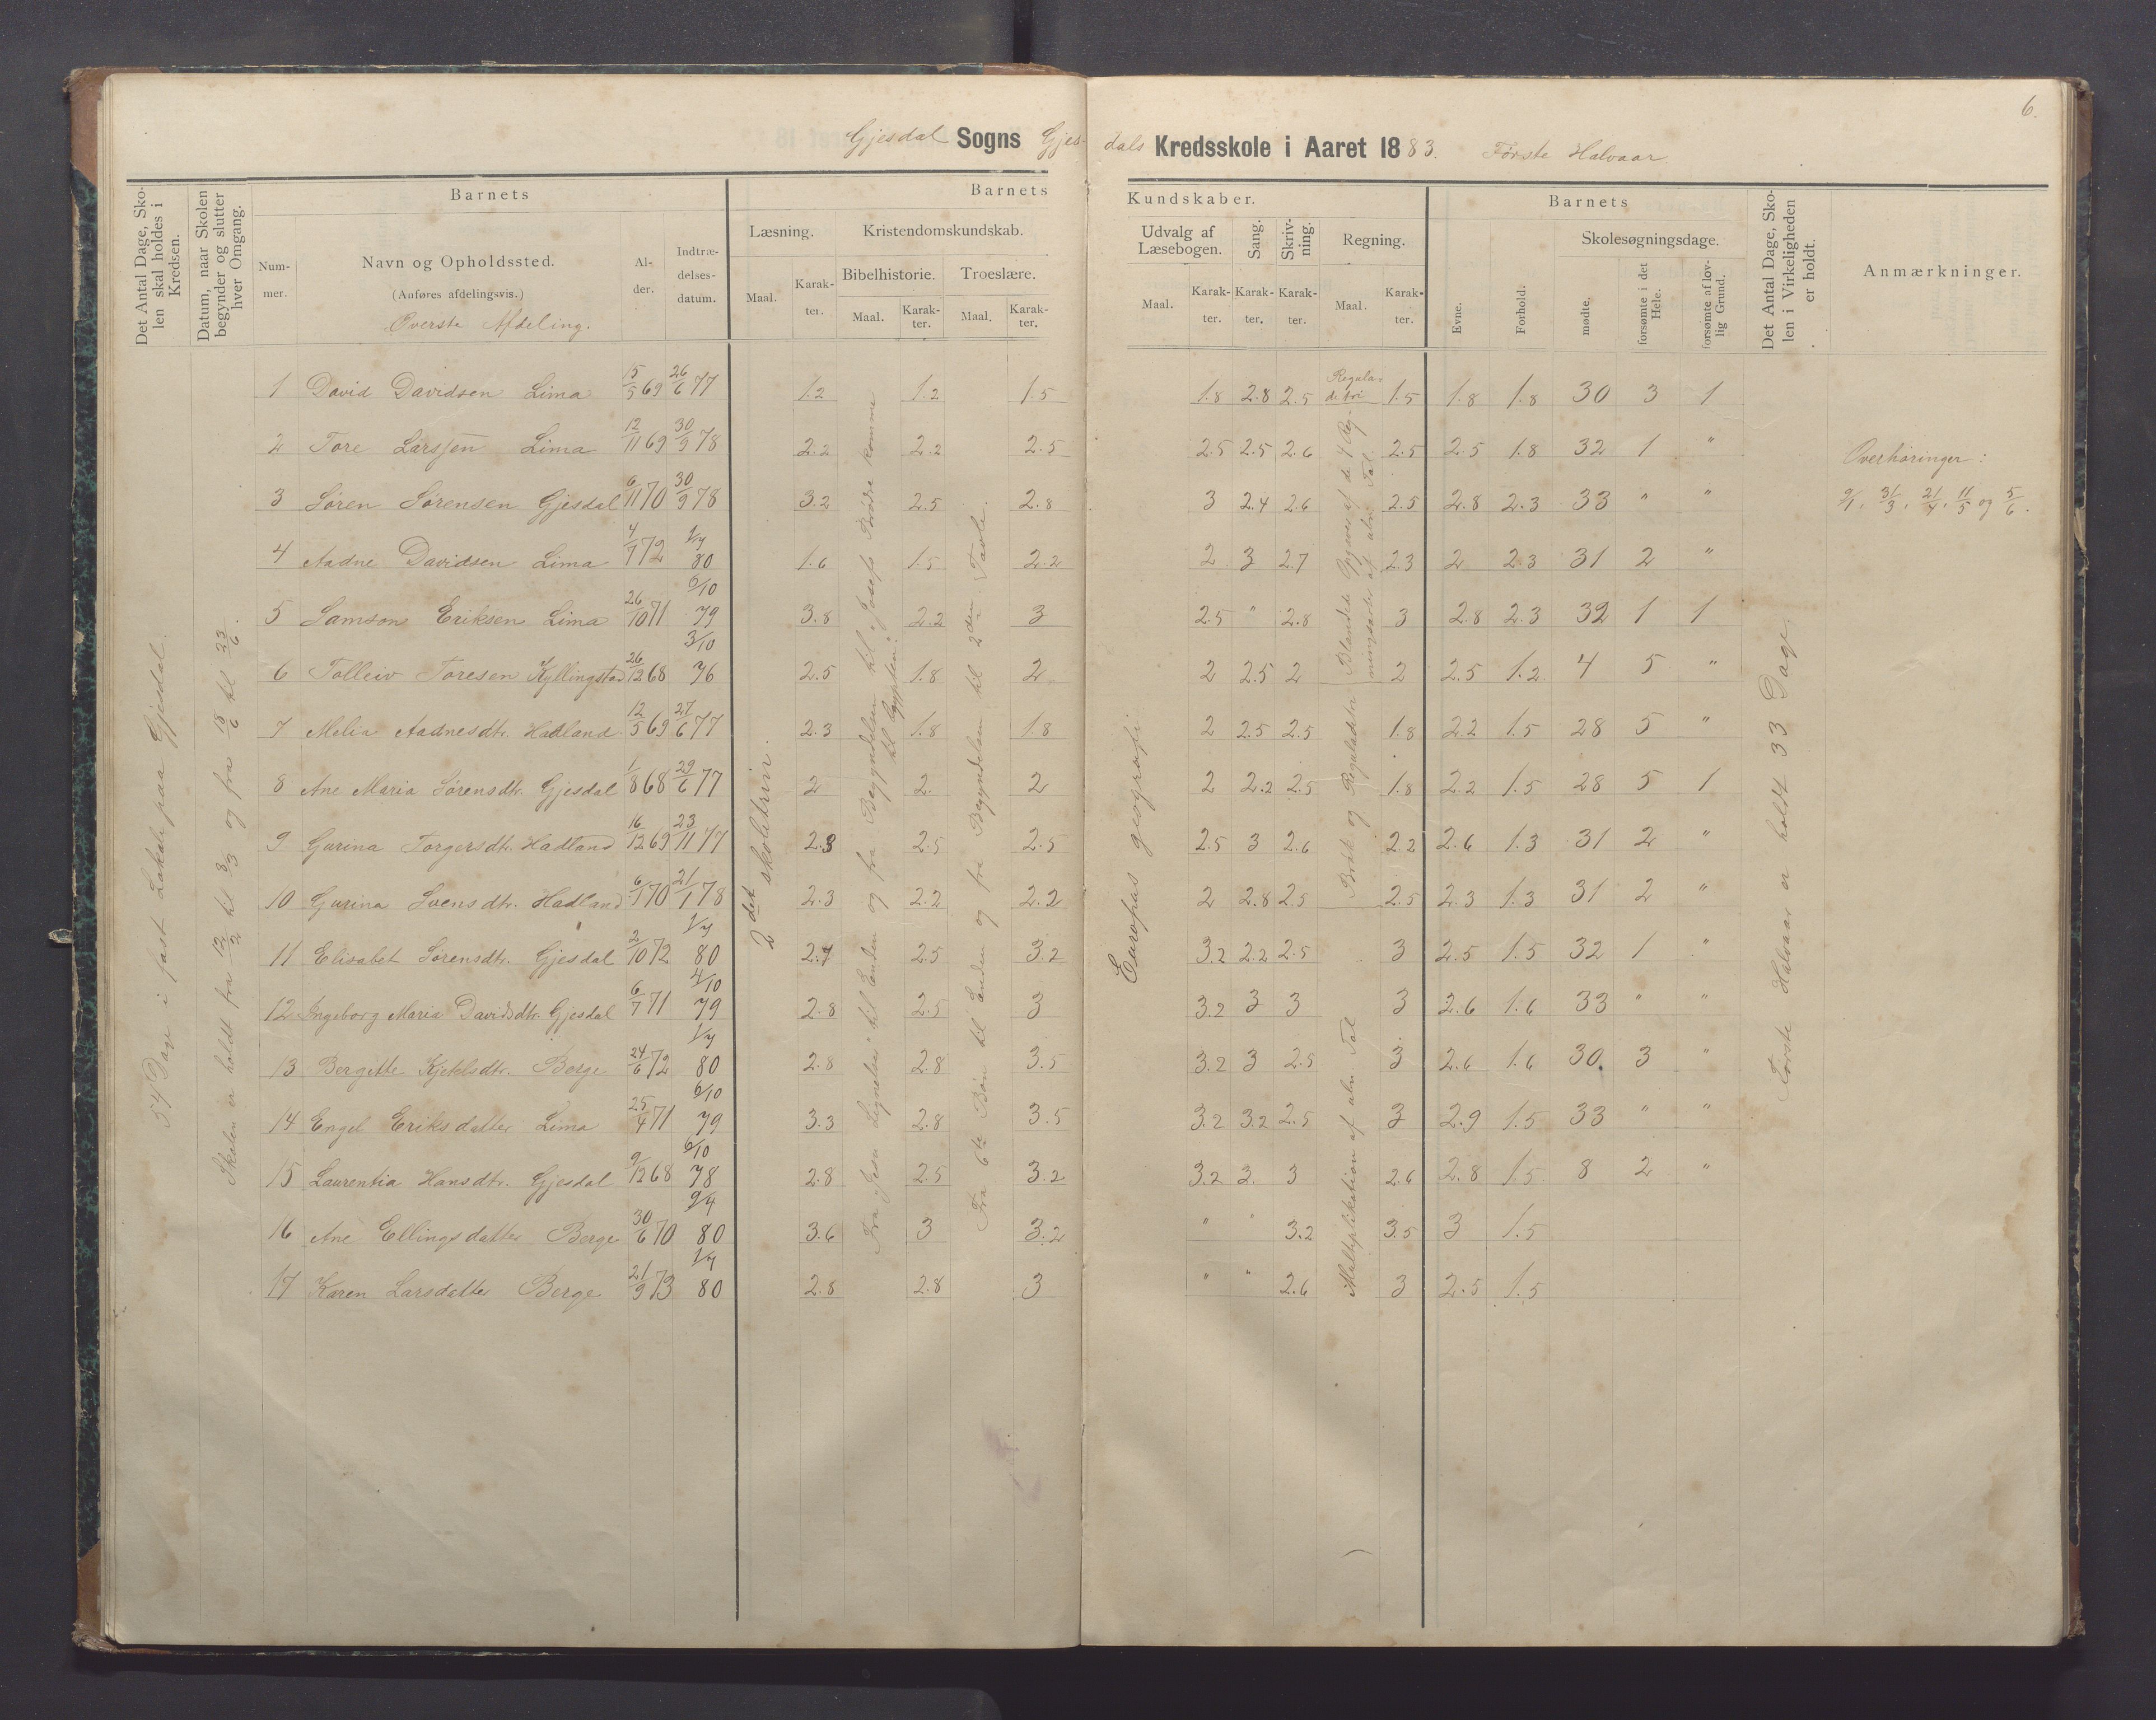 6.
Gjesdal Sogns Gjes- dals Kredsskole i Aaret 1883. Første Halvaar
Det Antal Dage, Sko-
len skal holdes i
Kredsen.
Datum, naar Skolen
begynder og slutter
hver Omgang.
Barnets
Num-
mer.
Navn og Opholdssted.
(Anføres afdelingsvis.)
Øverste Afdeling.
Al-
der.
Indtræ-
delses-
datum.
Barnets Kundskaber.
Læsning.
Maal.
Karak-
ter.
Kristendomskundskab.
Bibelhistorie.
Maal.
Karak-
ter.
Troeslære.
Maal.
Karak-
ter.
Udvalg af
Læsebogen.
Maal.
Karak-
ter.
Sang.
Karak-
ter.
Skriv-
ning.
Karak-
ter.
Regning.
Maal.
Karak-
ter.
Barnets
Evne.
Forhold.
Skolesøgningsdage.
mødte.
forsømte i det
Hele.
forsømte af lov-
lig Grund.
Det Antal Dage, Sko-
len i Virkeligheden
er holdt.
Anmærkninger.
54 Dage i fast Lokale paa Gjesdal.
Skolen er holdt fra 12/2 til 3/3 og fra 18/6 til 23/6.
2det skoletrin.
Fra "Jesu Lignelser" til Enden og fra Begyndelsen til "Josefs Brødre komme
til Egypten."
Fra 6te Bøn til Enden og fra Begyndelsen til 2den Tavle.
Europas geografi
Regula-
de tri
Brøk og Reguladetri Blandede Opgaver af de 4 Reg-
ningsarter af ubn. Tal.
Multiplikation af ubn. Tal
Første Halvaar er holdt 33 Dage.
Overhøringer:
9/1, 31/3, 21/4, 11/5 og 5/6.
1 David Davidsen Lima 15/5 69 26/6 77 1.2 1.2 1.5 1.8 2.8 2.5 1.5 1.8 1.8 30 3 1
2 Tore Larssen Lima 12/11 69 30/9 78 2.2 2.2 2.5 2.5 2.5 2.6 2.5 2.5 1.8 32 1 "
3 Søren Sørensen Gjesdal 6/11 70 30/9 78 3.2 2.5 2.8 3 2.4 2.6 2.5 2.8 2.3 33 " "
4 Aadne Davidsen Lima 4/7 72 1/7 80 1.6 1.5 2.2 2 3 2.7 2.3 2 2.3 31 2 "
5 Samson Eriksen Lima 26/10 71 6/10 79 3.8 2.2 3 2.5 " 2.8 3 2.8 2.3 32 1 1
6 Tolleiv Toresen Kyllingstad 26/12 68 3/10 76 2.5 1.8 2 2 2.5 2 2 2.5 1.2 4 5 "
7 Melia Aadnesdtr. Hadland 12/5 69 27/6 77 2.3 1.8 1.8 2 2.5 2.5 1.8 2.2 1.5 28 5 "
8 Ane Maria Sørensdtr. Gjesdal 1/8 68 29/6 77 2 2. 2 2 2.2 2.5 1.8 2.2 1.5 28 5 1
9 Gurina Torgersdtr. Hadland 16/12 69 23/11 77 2.3 2.5 2.5 2.5 3 2.6 2.2 2.6 1.3 31 2 "
10 Gurina Svensdtr. Hadland 6/1 70 21/1 78 2.3 2.2 2.2 2 2.8 2.5 2.5 2.3 1.3 31 2 "
11 Elisabet Sørensdtr. Gjesdal 2/10 72 1/7 80 2.7 2.5 3.2 3.2 2.2 2.5 3 2.5 1.5 32 1 "
12 Ingeborg Maria Davidsdtr. Gjesdal 6/7 71 4/10 79 2.8 2.5 3 3.2 3 3 3 2.6 1.6 33 " "
13 Bergitte Kjetelsdtr. Berge 24/6 72 1/7 80 2.8 2.8 3.5 3.2 3 2.5 3 2.6 1.6 30 3 "
14 Engel Eriksdatter Lima 25/4 71 6/10 79 3.3 2.8 3.5 3.2 3.2 2.5 3 2.9 1.5 33 " "
15 Laurentia Hansdtr. Gjesdal 9/12 68 6/10 78 2.8 2.5 3.2 3.2 2. 3 2.6 2.8 1.5 8 2 "
16 Ane Ellingsdatter Berge 30/6 70 9/4 80 3.6 3 3.2 " " 3.2 3.5 3 1.5
17 Karen Larsdatter Berge 21/9 73 1/7 80 2.8 2.8 3 " " 2.6 3 2.5 1.5